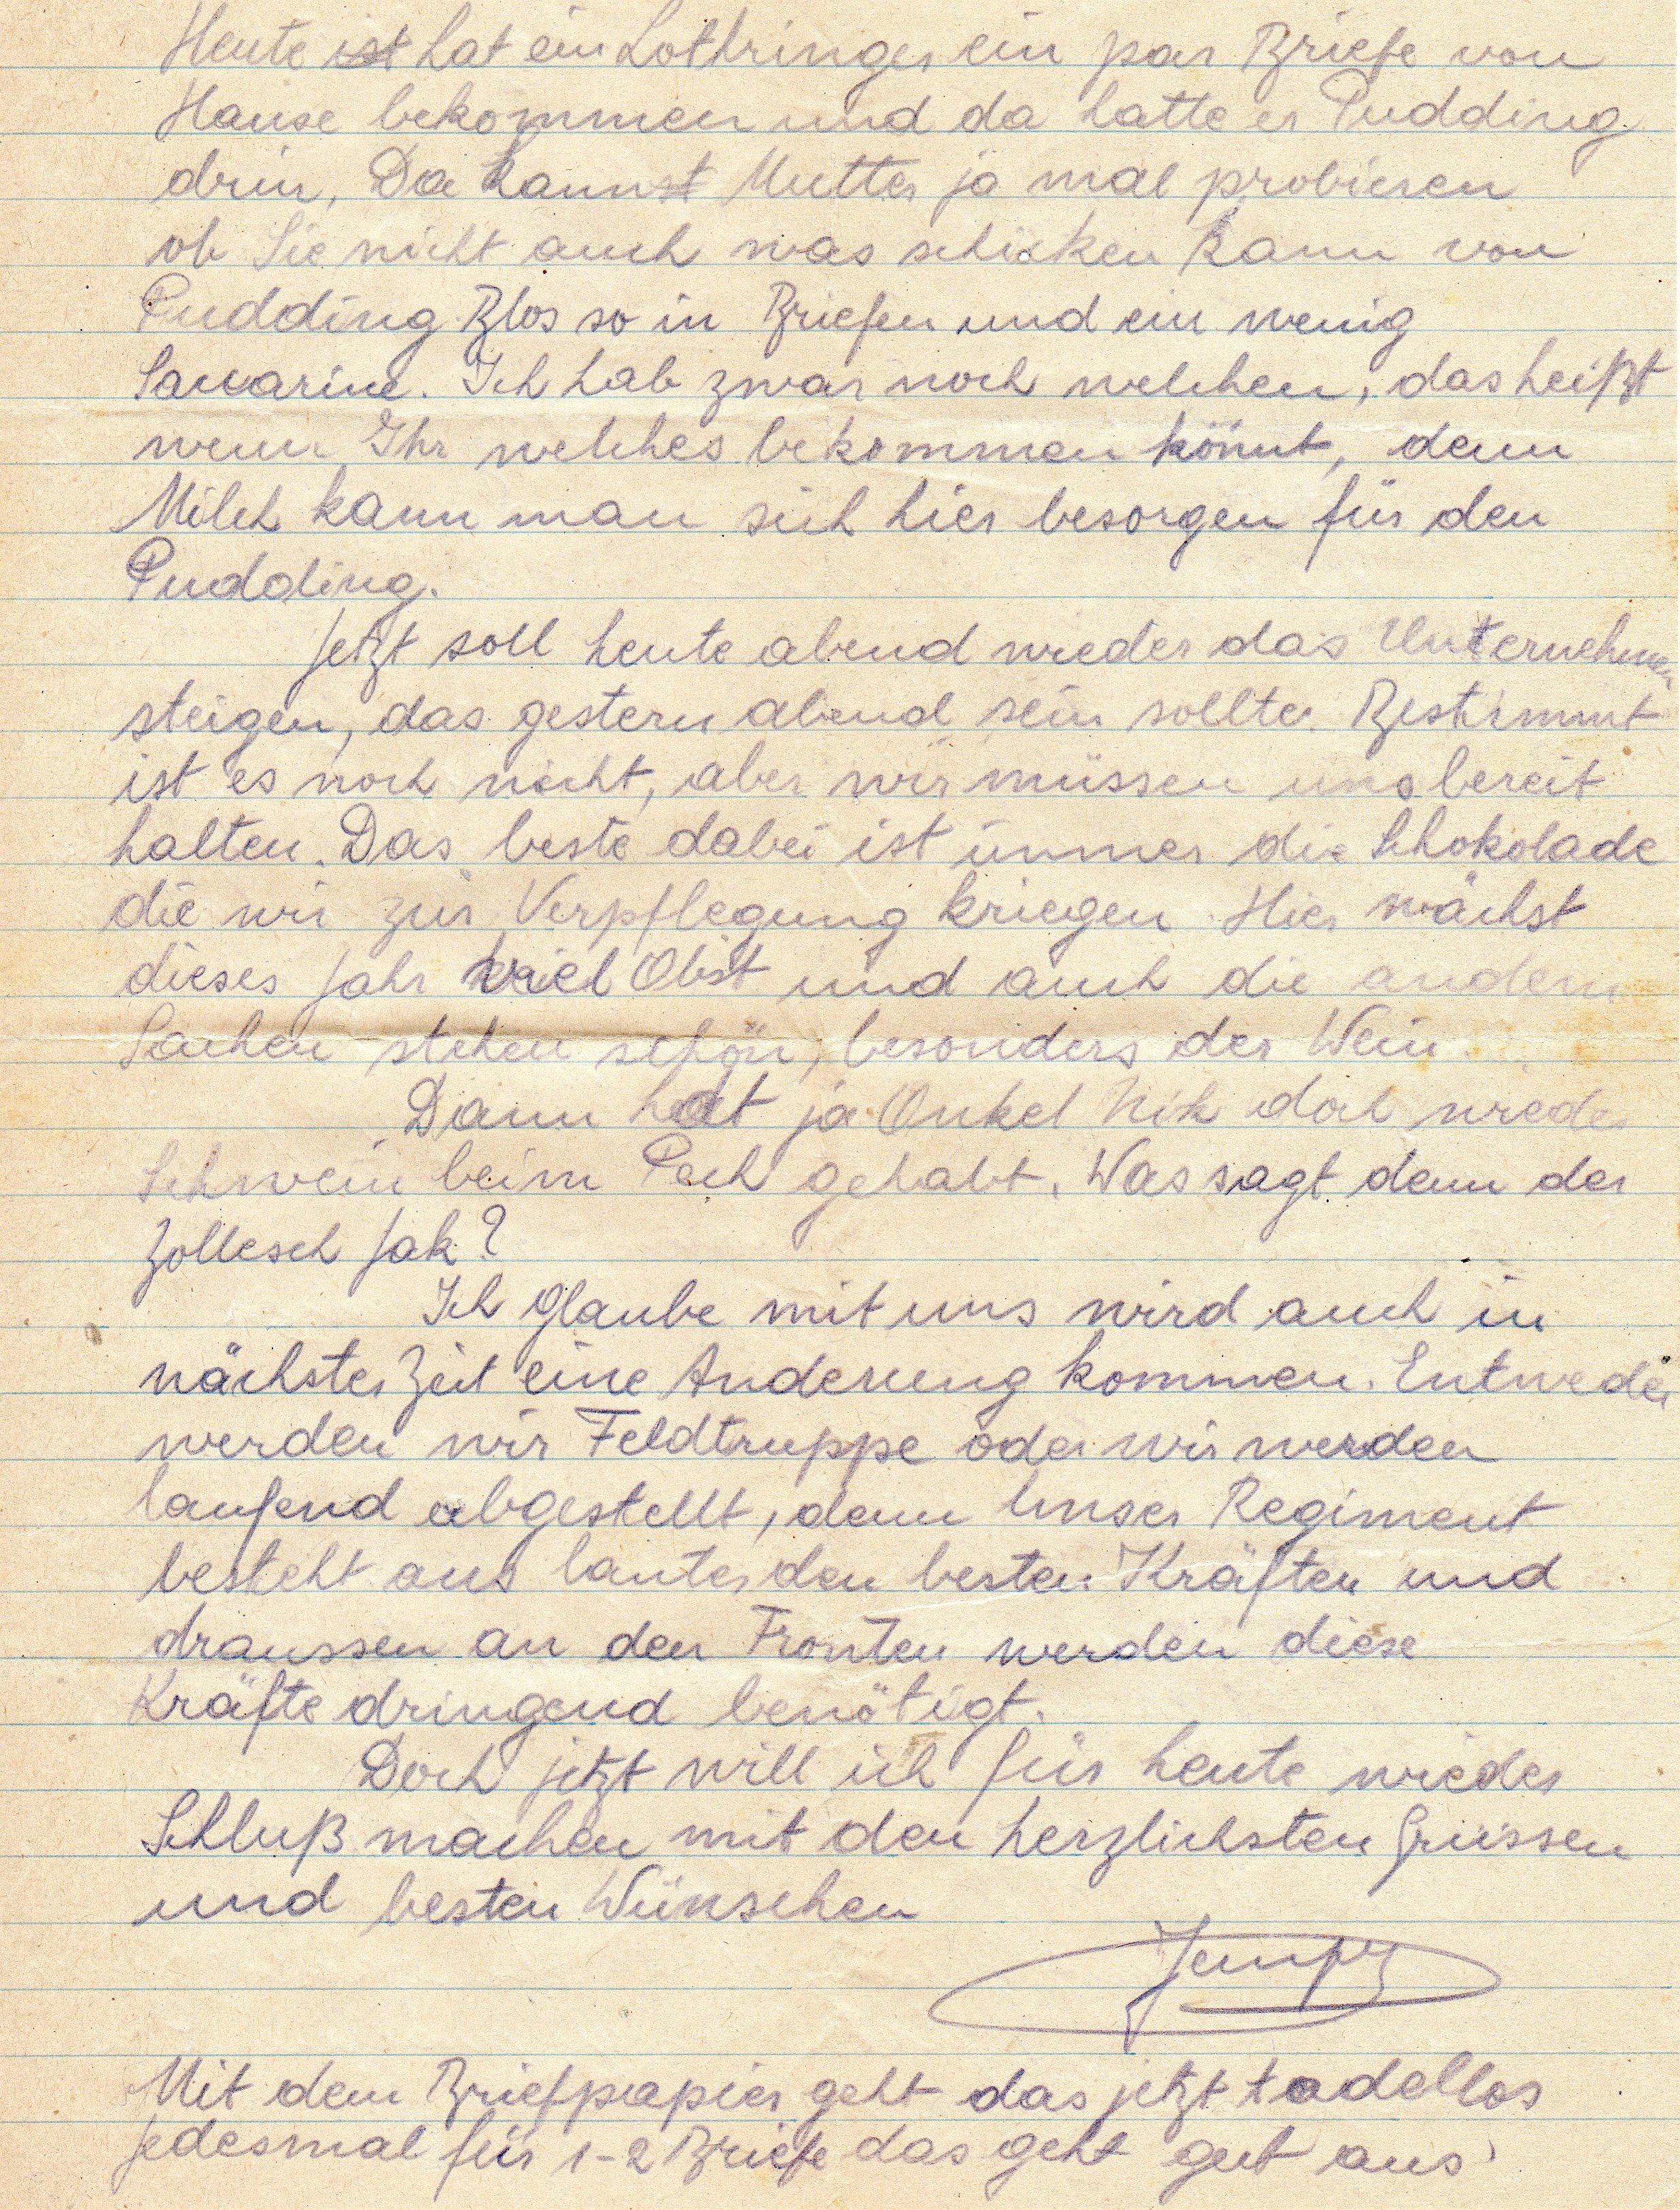 Heute ist hat ein Lothringer ein par Briefe von
Hause bekommen und da hatte er Pudding
drin, Da kannst Mutter ja mal probieren
ob Sie nicht auch was schicken kann von
Pudding Blos so in Briefen und ein wenig
Saccarine. Ich hab zwar noch welchen, das heißt
wenn Ihr welches bekommen könnt, denn
Milch kann man sich hier besorgen für den
Pudding.
Jetzt soll heute abend wieder das Unternehmen
steigen, das gestern abend sein sollte. Bestimmt
ist es noch nicht, aber wir müssen uns bereit
halten. Das beste dabei ist immer die Schokolade
die wir zur Verpflegung kriegen. Hier wächst
dieses Jahr viel Obst und auch die andern
Sachen stehen schön, besonders der Wein.
Dann hat ja Onkel Nik doch wieder
Schwein beim Pech gehabt. Was sagt denn der
Zollesch Jak?
Ich glaube mit uns wird auch in
nächster Zeit eine Anderung kommen. Entweder
werden wir Feldtruppe oder wir werden
laufend abgestellt, denn Unser Regiment
besteht aus lauter den besten Kräften und
draussen an den Fronten werden diese
Kräfte dringend benötigt.
Doch jetzt will ich für heute wieder
Schluß machen mit den herzlichsten Grüssen
und besten Wünschen
Jempy
Mit dem Briefpapier geht das jetzt tadellos
Jedesmal für 1-2 Briefe das geht gut aus